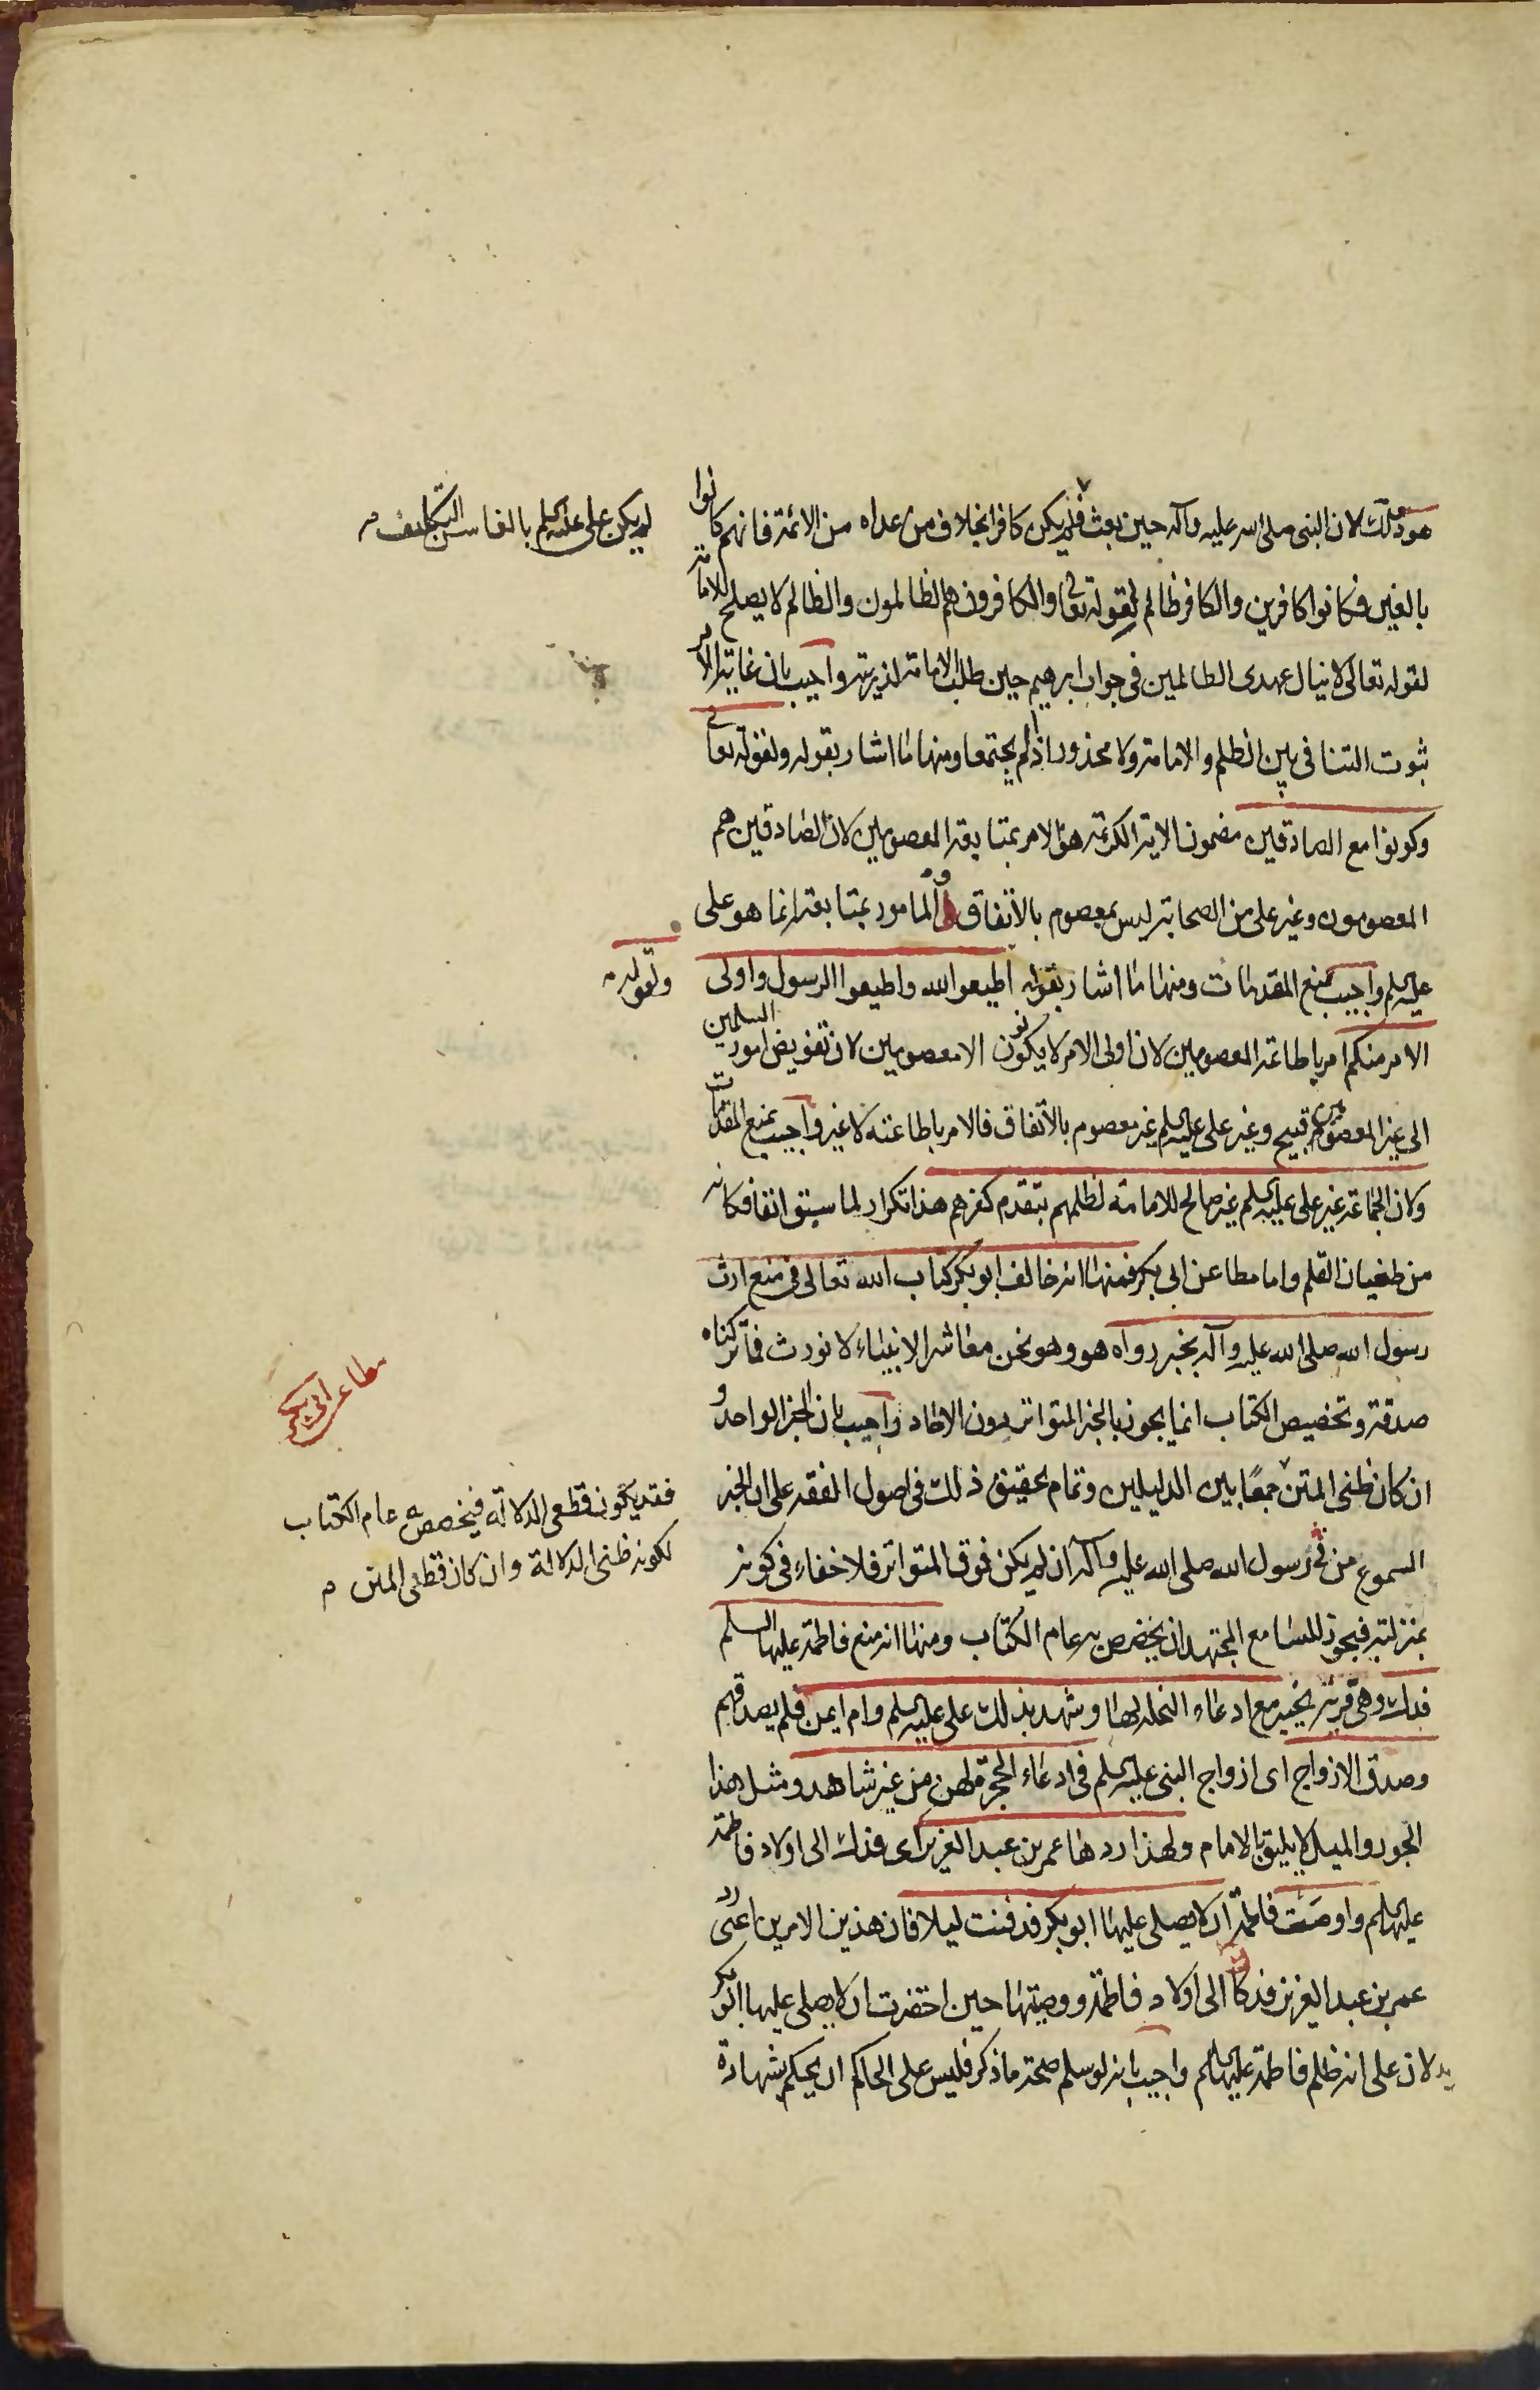 هو وذلك لان النبى صلى الله عليه وآله حين بعث فلم يكن كافرا بخلاف من عداه من الائمة فانهم كانوا
لم يكن على عليه السلم بالغا سن التكليف م
بالغين فكانوا كافرين والكافر ظالم لقوله تعالى والكافرون هم الظالمون والظالم لا يصلح للامامة
لقوله تعالى لا ينال عهدى الظالمين فى جواب ابرهيم حين طلب الامامة لذريته واجيب بان غاية الامر
ثبوت التنافى بين الظلم والامامة ولا محذور اذا لم يجتمعا ومنها ما اشار بقوله ولقوله تعالى
وكونوا مع الصادقين مضمون الاية الكريمة هو الامر بمتابعة المعصومين لان الصادقين هم
المعصومون وغير على من الصحابة ليس بمعصوم بالاتفاق والمامور بمتابعته انما هو على
عليه السلم واجيب بمنع المقدمات ومنها ما اشار بقوله اطيعوا الله واطيعوا الرسول واولى
ولقوله م
الامر منكم امر باطاعة المعصومين لان اولى الامر لا يكونون الا معصومين لان تفويض امور المسلمين
الى غير المعصومين قبيح وغير على عليه السلم غير معصوم بالاتفاق فالامر باطاعته لا غير واجيب بمنع المقدمات
ولان الجماعة غير على عليه السلم غير صالح للامامة لظلمهم بتقدم كفرهم هذا تكرار لما سبق انفا فكانه
من طغيان القلم واما مطاعن ابى بكر فمنها انه خالف ابو بكر كتاب الله تعالى فى منع ارث
رسول الله صلى الله عليه وآله بخبر رواه هو وهو نحن معاشر الانبياء لا نورث فما تركناه
مطاعن ابى بكر
صدقة وتخصيص الكتاب انما يجوز بالخبر المتواتر دون الاحاد واجيب بان الخبر الواحد و
ان كان ظنى المتن جمعًا بين الدليلين وتمام تحقيق ذلك فى اصول الفقه على ان الخبر
فقد يكون قطعى الدلالة فيخصص به عام الكتاب
لكونه ظنى الدلالة وان كان قطعى المتن م
المسموع من فى رسول الله صلى الله عليه وآله ان لم يكن فوق المتواتر فلا خفاء فى كونه
بمنزلته فيجوز للسامع المجتهد ان يخصص به عام الكتاب ومنها انه منع فاطمة عليها السلم
فدك وهى قرية بخيبر مع ادعاء النحلة لها وشهد بذلك على عليه السلم وام ايمن فلم يصدقهم
وصدق الازواج اى ازواج النبى عليه السلم فى ادعاء الحجرة لهن من غير شاهد ومثل هذا
الجور والميل لا يليق بالامام ولهذا ردها عمر بن عبد العزيز اى فدك الى اولاد فاطمة
عليها السلم واوصت فاطمة ان لا يصلى عليها ابو بكر فدفنت ليلا فان هذين الامرين اعنى رد
عمر بن عبد العزيز فدكا الى اولاد فاطمة ووصيتها حين احتضرت ان لا يصلى عليها ابو بكر
يدلان على انه ظلم فاطمة عليها السلم واجيب بانه لو سلم صحة ما ذكر فليس على الحاكم ان يحكم بشهادة